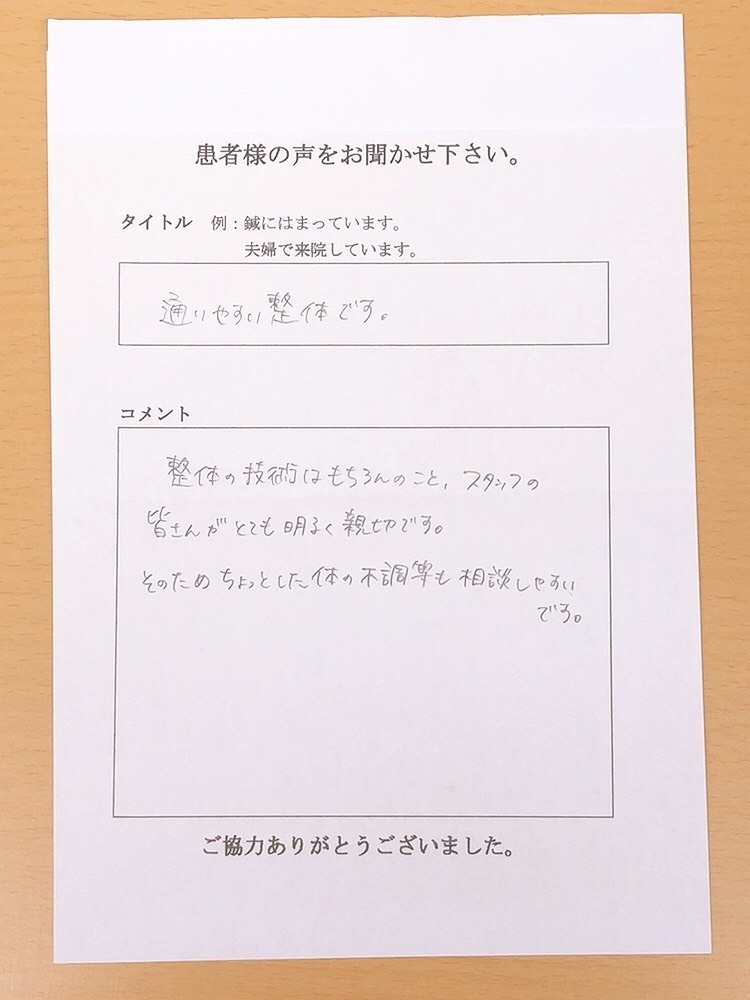 患者様の声をお聞かせ下さい。
タイトル 例：鍼にはまっています。
夫婦で来院しています。
通いやすい整体です。
コメント
整体の技術はもちろんのこと、スタッフの
皆さんがとても明るく親切です。
そのためちょっとした体の不調等も相談しやすい
です。
ご協力ありがとうございました。